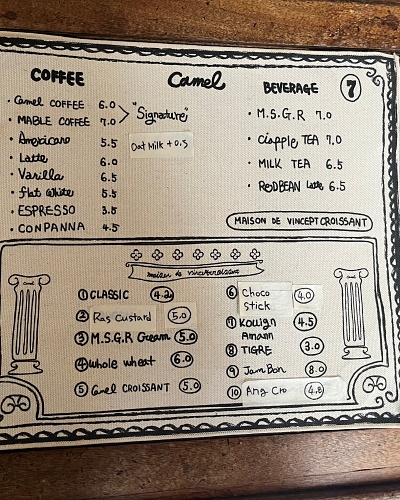 COFFEE
Camel
BEVERAGE
7
· Camel COFFEE 6.0
· MABLE COFFEE 7.0
"Signature"
· Americano 5.5
· Latte 6.0
· Vanilla 6.5
· flat white 5.5
· ESPRESSO 3.5
· CONPANNA 4.5
Oat Milk + 0.5
· M.S.G.R 7.0
· C.apple TEA 7.0
· MILK TEA 6.5
· REDBEAN Latte 6.5
MAISON DE VINCEPTCROISSANT
maison de vinceptcroissant
① CLASSIC 4.2
② Ras Custard 5.0
③ M.S.G.R Cream 5.0
④ whole wheat 6.0
⑤ Camel CROISSANT 5.0
⑥ Choco Stick 4.0
⑦ Kouign Amann 4.5
⑧ TIGRE 3.0
⑨ Jam Bon 8.0
⑩ Ang Cro 4.8